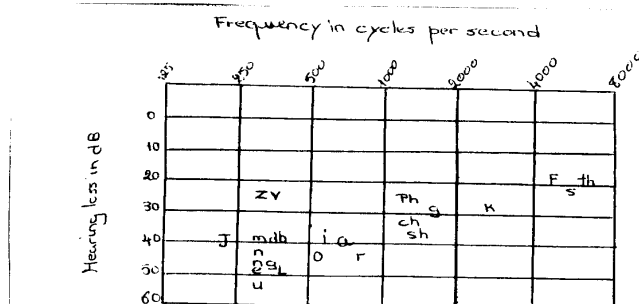 Frequency in cycles per second
125 250 500 1000 2000 4000 8000
Hearing loss in dB
0
10
20
F s th
zv
Ph g k
30
ch
sh
40
J mdb i a
n o r
ng
50
u
60